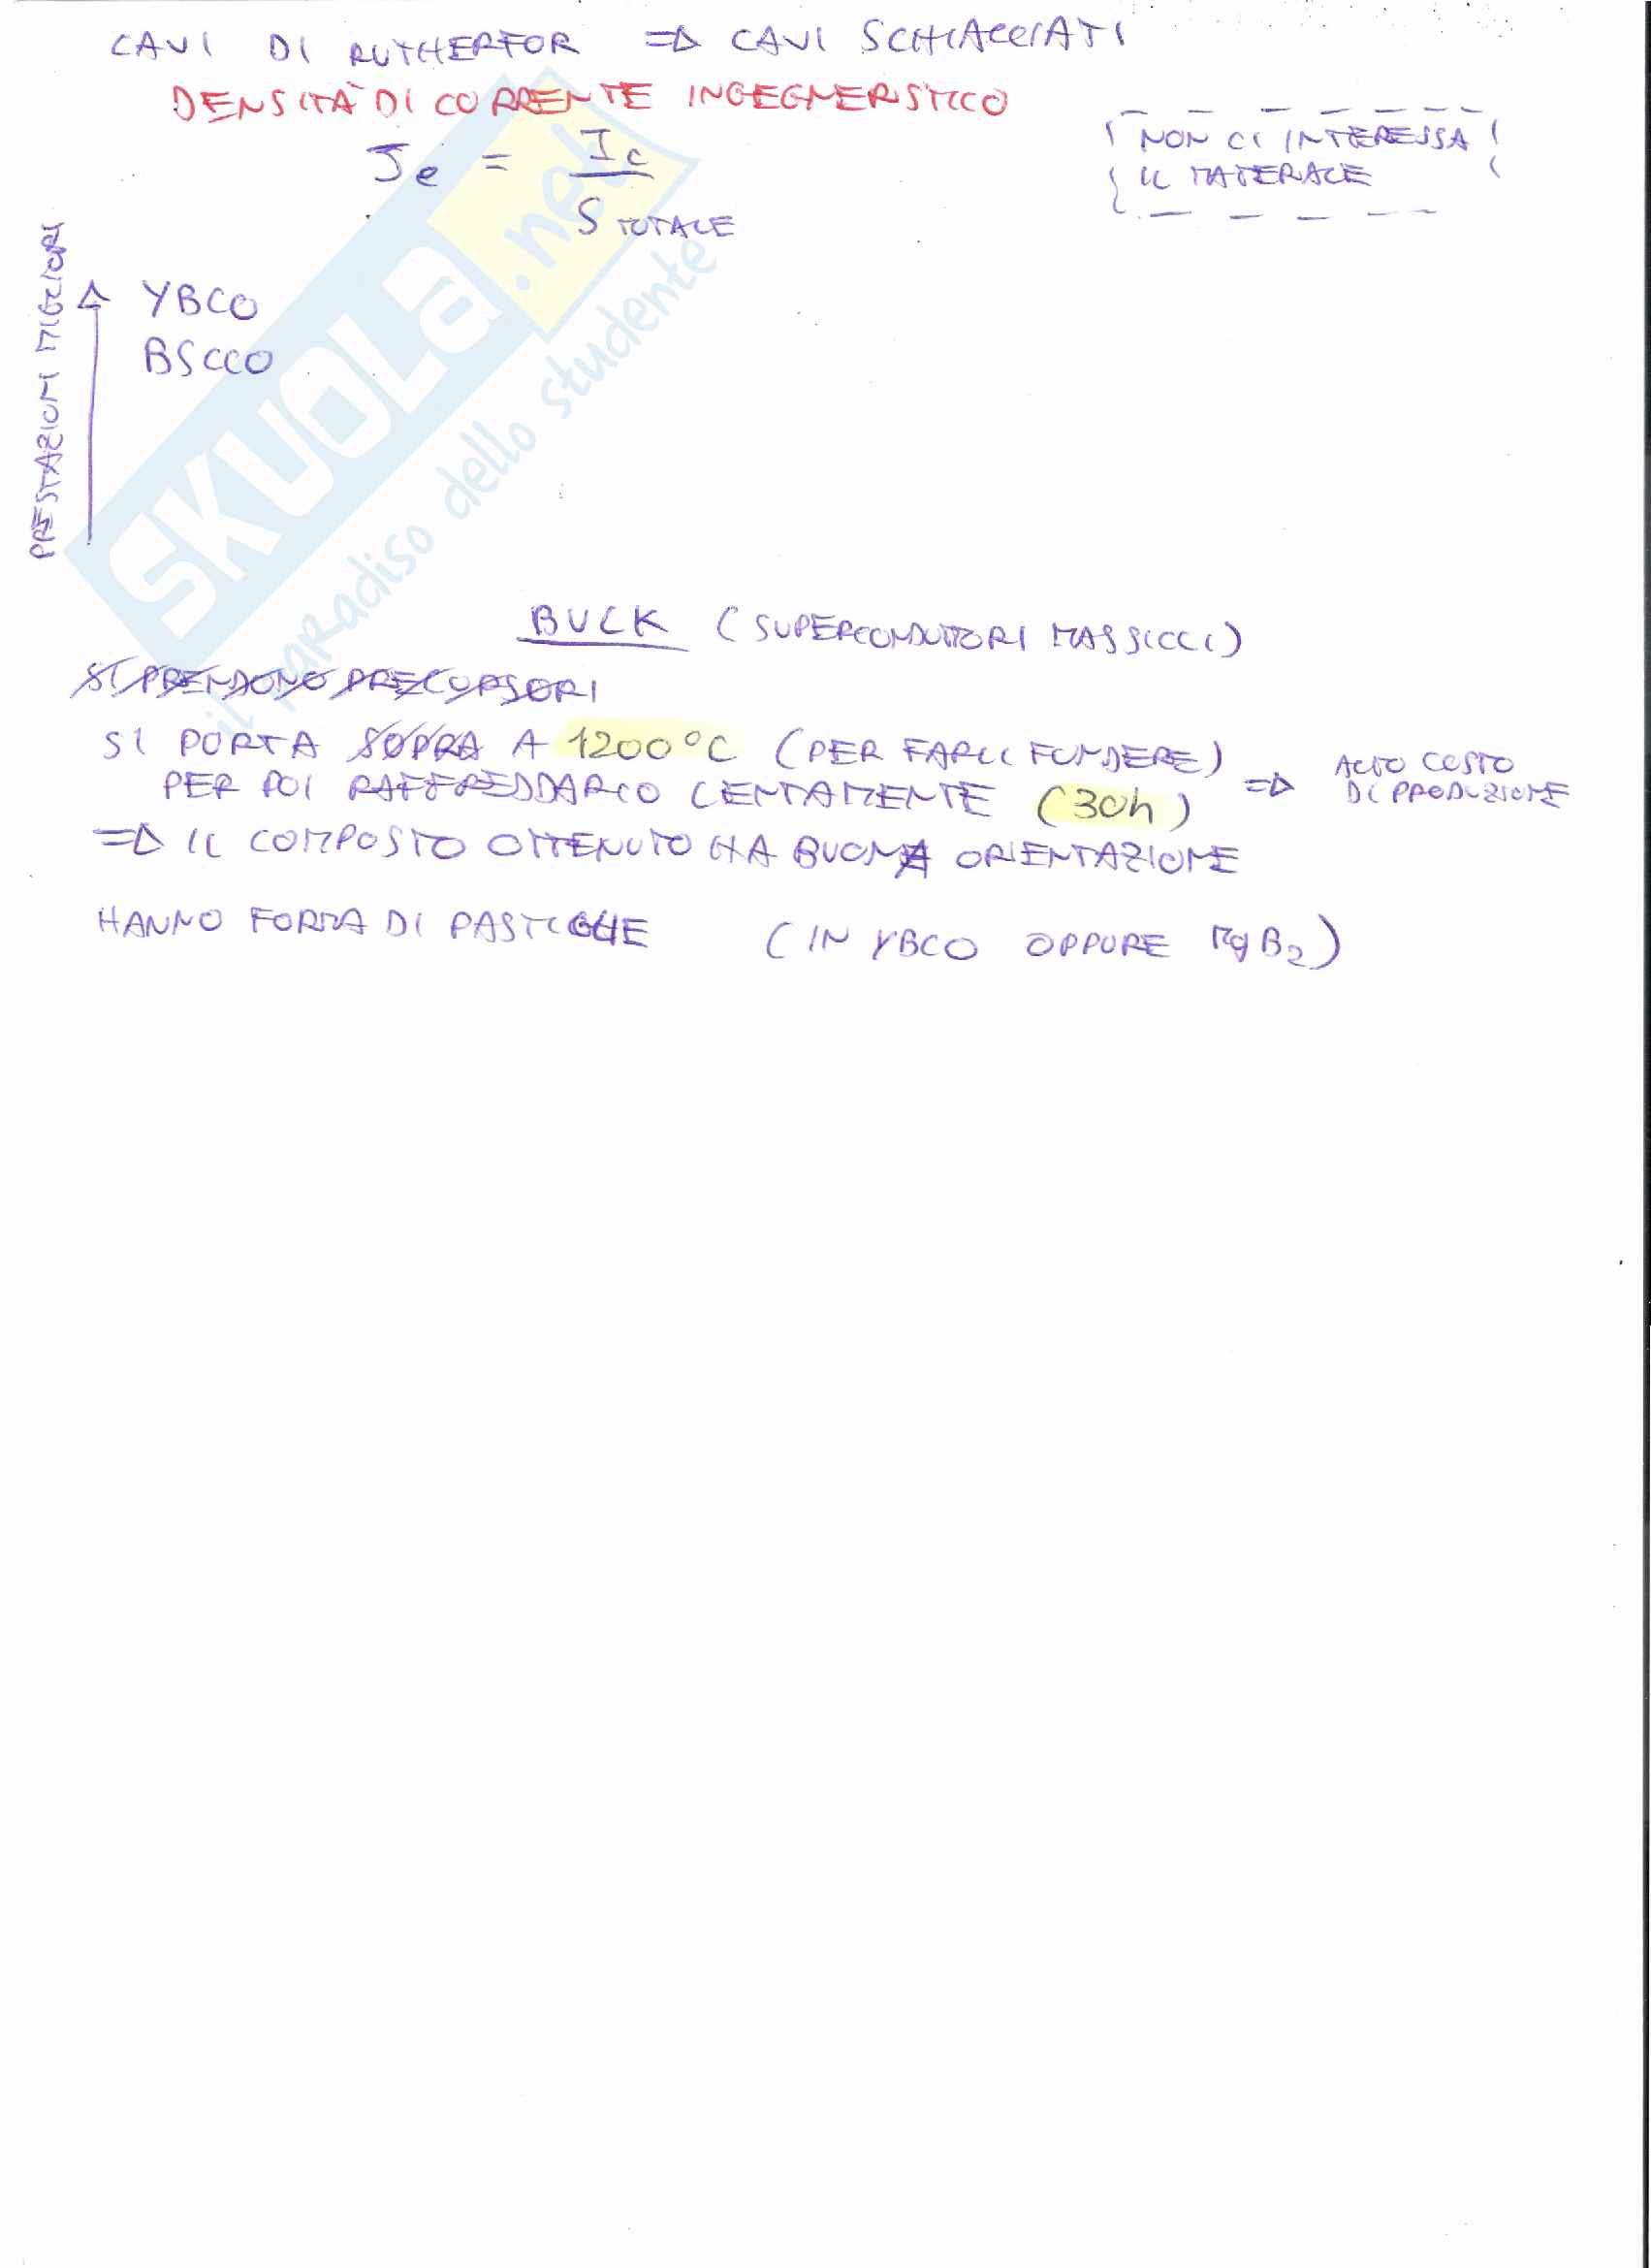 CAVI DI RUTHERFOR => CAVI SCHIACCIATI
DENSITÀ DI CORRENTE INGEGNERISTICO
Je = Ic / S TOTALE
NON CI INTERESSA
IL MATERIALE
PRESTAZIONI MIGLIORI
YBCO
BSCCO
SKUOLA.net
il paradiso dello studente
BULK (SUPERCONDUTTORI MASSICCI)
SI PRENDONO PRECURSORI
SI PORTA SOPRA A 1200°C (PER FARLI FONDERE)
PER POI RAFFREDDARLO LENTAMENTE (30h) => ALTO COSTO
DI PRODUZIONE
=> IL COMPOSTO OTTENUTO HA BUONA ORIENTAZIONE
HANNO FORMA DI PASTIGLIE (IN YBCO OPPURE MgB₂)